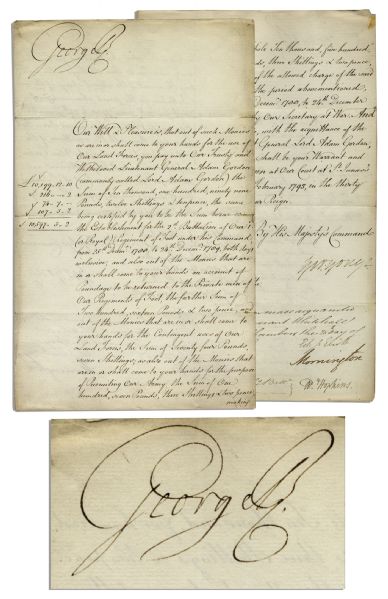 George R.
Our Will & Pleasure is, that out of such Monies
as are or shall come to your hands for the use of
Our Land Forces, you pay unto Our Trusty and
Welbeloved Lieutenant General Adam Gordon
commonly called Lord Adam Gordon the
Sum of Ten Thousand, one hundred, ninety nine
Pounds, twelve Shillings & tenpence, the same
being certified by you to be the Sum
the Establishment for the 2d Battalion of Our
Royal Regiment of Foot under his Command
from 25th 24th December both days
inclusive; and also out of the Monies that
are or shall come to your hands on account of
Poundage to be returned to the Private men of
Our Regiments of Foot the further Sum of
Two hundred, sixteen Pounds & two pence,
out of the Monies that are or shall come to
your hands for the Contingent uses of Our
Land Forces, the Sum of Seventy four Pounds,
seven Shillings, and out of the Monies that
are or shall come to your hands for the purpose
of Recruiting Our Army the Sum of One
hundred, seven Pounds, three Shillings & two pence
making
£ 10,199.12.10
£ 216.-.2
£ 74.7.-
£ 107.3.2
£ 10,597.3.2
whole Ten thousand, five hundred
three Shillings & two pence,
of the allowed charge of the said
the period abovementioned,
to 24th December
by Our Secretary at War. And
with the acquittance of the
General Lord Adam Gordon,
shall be your Warrant and
at Our Court at St. James's
February 1793, in the thirty
Our Reign.
By His Majesty's Command
Geo: Yonge
Whitehall
day of
Mornington
Wm. Hopkins.
George R.